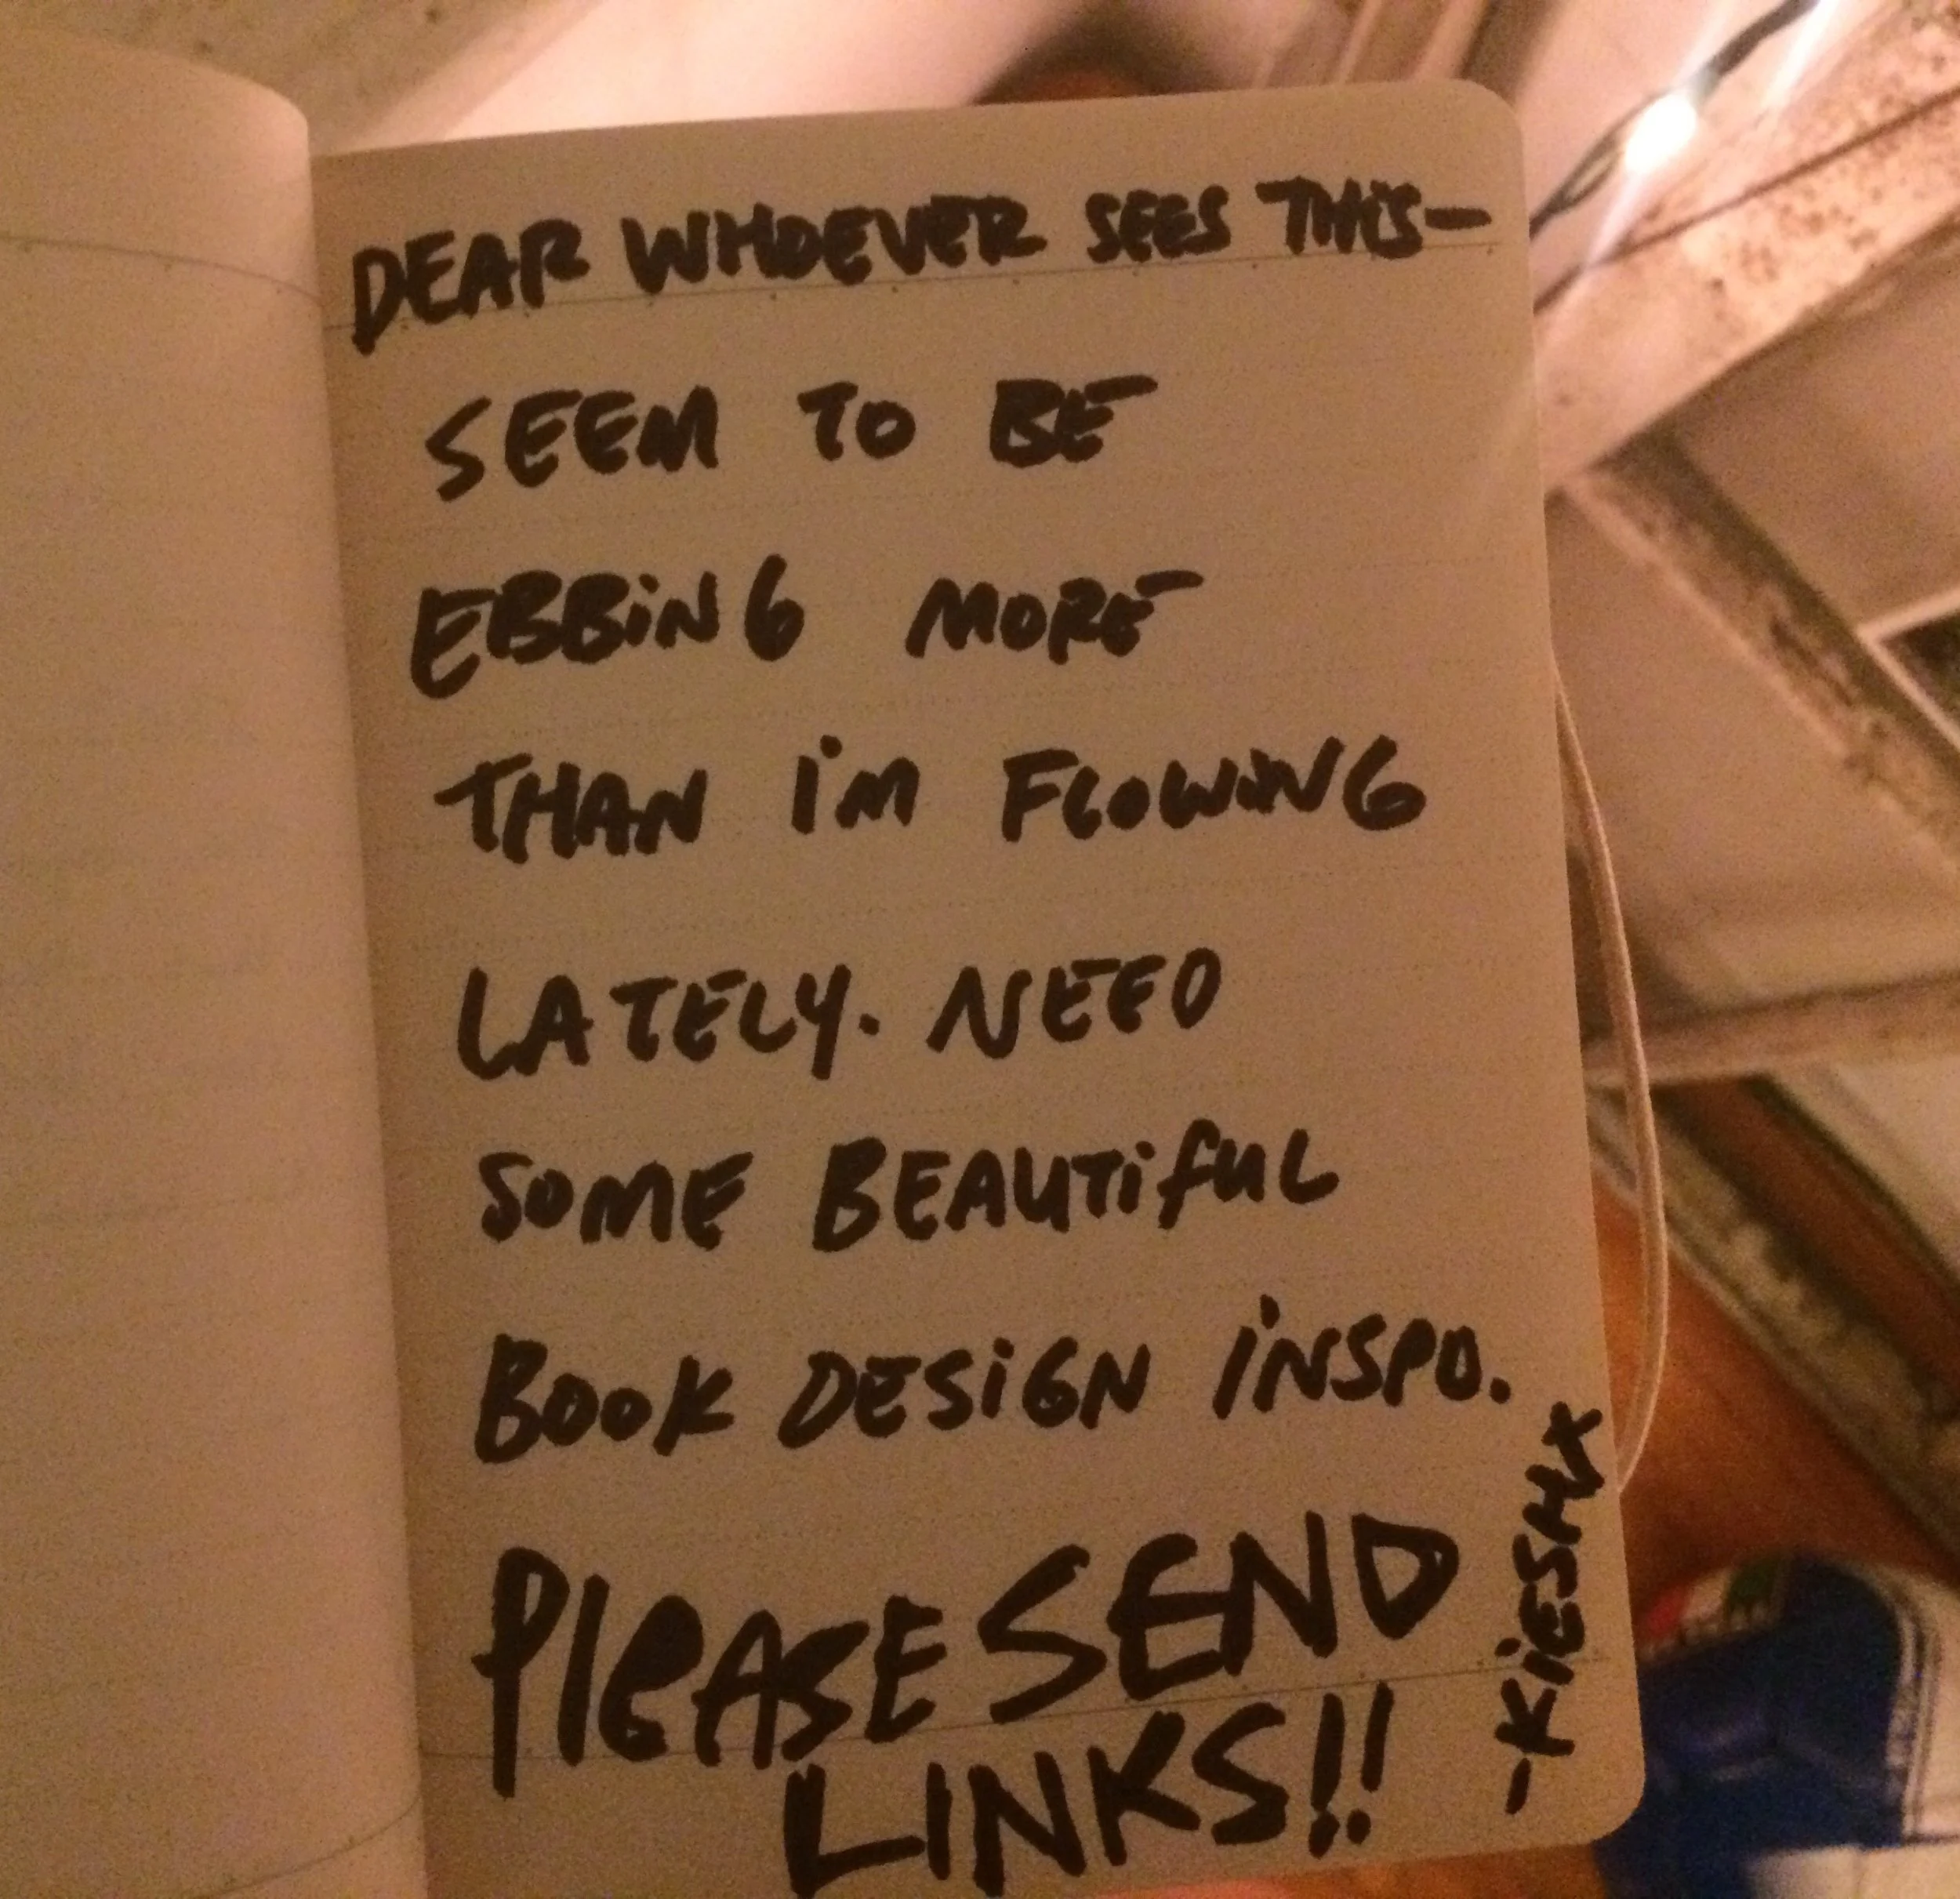 DEAR WHOEVER SEES THIS—
SEEM TO BE
EBBiNG MORE
THAN i'M FLOWiNG
LATELY. NEED
SOME BEAUTifUL
BOOK DESiGN iNSPO.
PleASE SEND
LINKS!!
-KiESHA